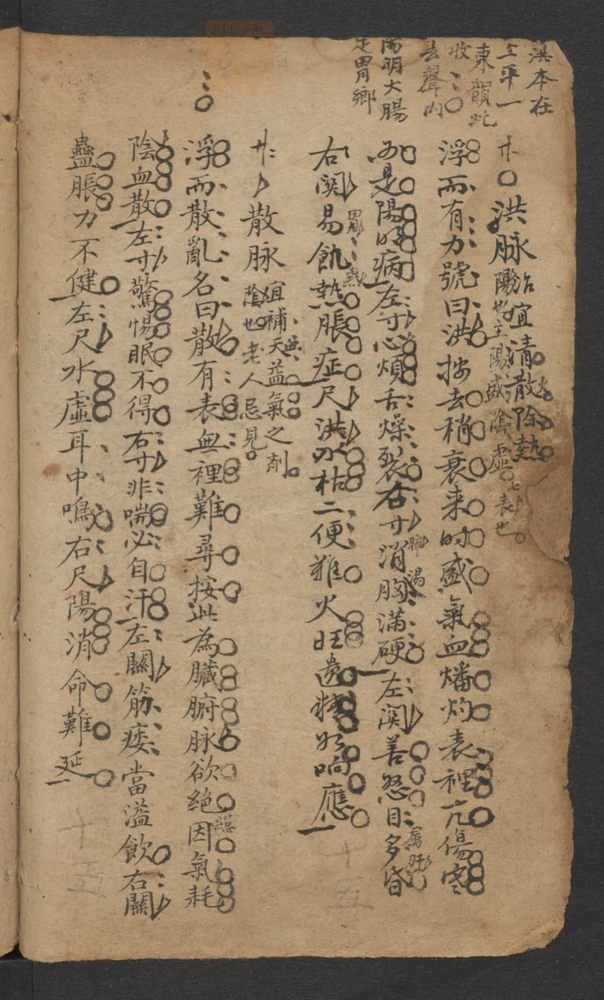 淇本在
上平一
東韻此
收
去聲內
陽明大腸
是胃鄉
廿○洪脉陽也宜清散除熱
主陽盛陰虛七表也
浮而有力號曰洪按去稍衰来时盛氣血燔灼表裡亢傷寒
必是陽明病左寸心煩舌燥裂右寸消胸滿硬左関善怒目多昏
右関易飢熱脹症尺洪水枯二便难火旺遗精如响應
廿散脉陰也宜補益氣之剤
老人忌見
浮而散亂名曰散有表無裡難尋按此為臟腑脉欲絶因氣耗
陰血散左寸驚惕眠不得右寸非喘必自汗左關筋痿當溢飲右關
蠱脹力不健左尺水虛耳中鳴右尺陽消命難延
十五
十五